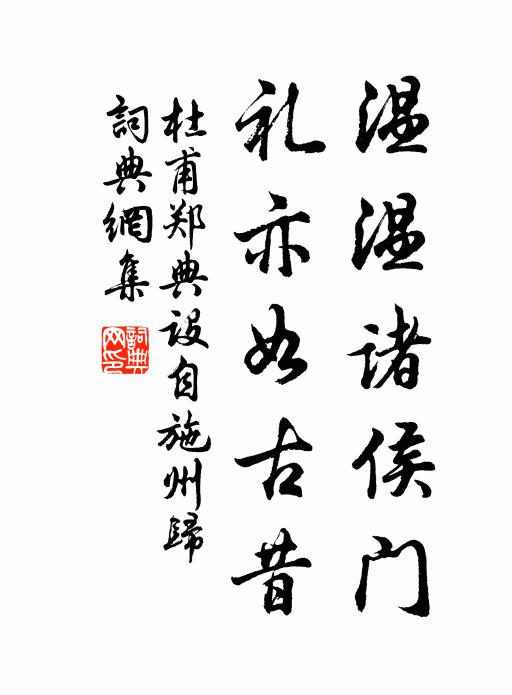 温温诸侯门
礼亦如古昔
杜甫郑典设自施州歸
詞典網集
詞典网印